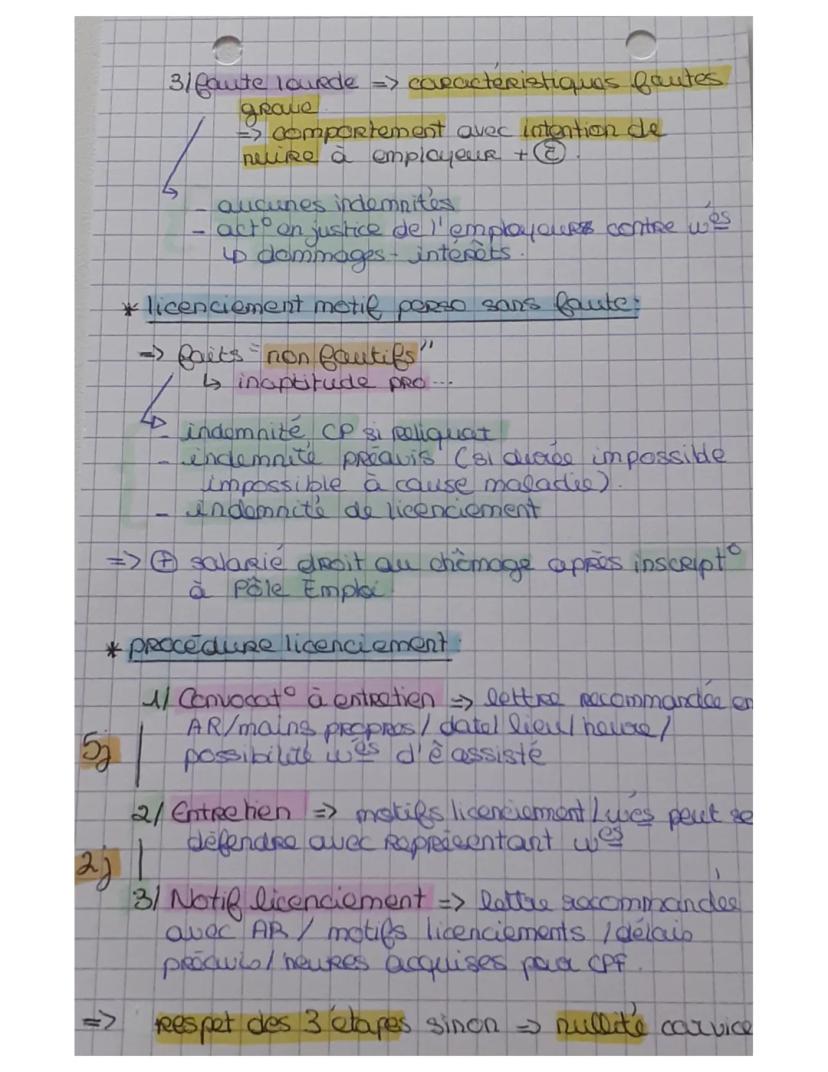 3/ faute lourde => caractéristiques fautes
grave
=> comportement avec intention de
nuire à employeur + Ⓔ.
- aucunes indemnités
- act° en justice de l'employeurs contre wés
↳ dommages - intérêts.
* licenciement motif perso sans faute:
=> faits "non fautifs"
↳ inaptitude pro...
- indemnité CP si reliquat
- indemnité préavis (si durée impossible
impossible à cause maladie).
- indemnité de licenciement
=> ⊕ salarié droit au chômage après inscript°
à Pôle Emploi
* procédure licenciement:
1/ Convocat° à entretien => lettre recommandée en
AR/mains propres / date/ lieu/ heure/
5j
possibilité wés d'ê assisté
2/ Entretien => motifs licenciement / wés peut se
défendre avec représentant wés
2j
3/ Notif licenciement => lettre recommandée
avec AR / motifs licenciements / délais
préavis / heures acquises pour CPF.
=> respet des 3 étapes sinon => nullité car vice